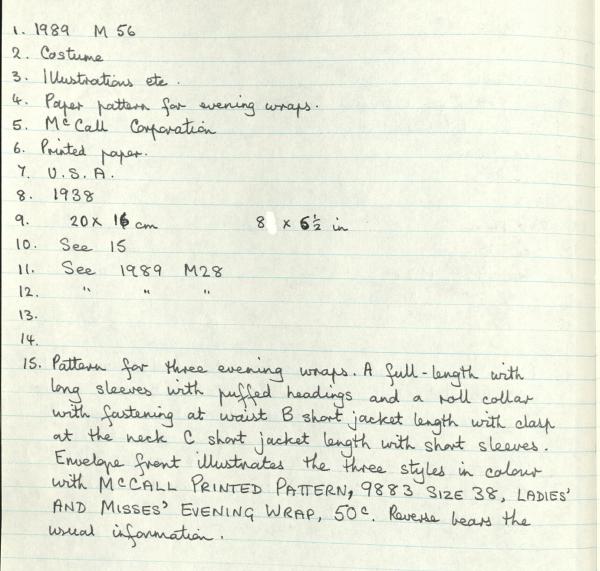 1. 1989 M 56
2. Costume
3. Illustrations etc.
4. Paper pattern for evening wraps.
5. McCall Corporation
6. Printed paper.
7. U.S.A.
8. 1938
9. 20 x 16 cm 8 x 6½ in
10. See 15
11. See 1989 M28
12. " " "
13.
14.
15. Pattern for three evening wraps. A full-length with
long sleeves with puffed headings and a roll collar
with fastening at waist B short jacket length with clasp
at the neck C short jacket length with short sleeves.
Envelope front illustrates the three styles in colour
with MCCALL PRINTED PATTERN, 9883 SIZE 38, LADIES'
AND MISSES' EVENING WRAP, 50c. Reverse bears the
usual information.